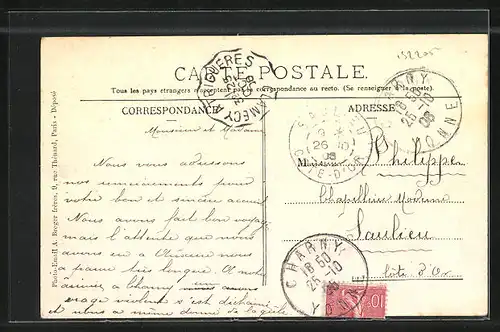 152205
CARTE POSTALE.
Tous les pays étrangers n'acceptent pas la correspondance au recto. (Se renseigner à la poste).
CORRESPONDANCE
ADRESSE
Monsieur et Madame
Nous vous adressons
nos remerciements pour
votre bon et sincère accueil
Nous avons fait bon voyage
mais l'attente que nous
avons eu a
a parue très longue. A notre
arrivée à Charny un
orage violent s'est déchaîné
et nous a même donné de la grêle
Monsieur Philippe
Chapellerie Moderne
Saulieu
Côte d'Or
CHARNY
18 50
25-10
08
YONNE
CÔTE-D'OR
26
08
CHARNY
18 50
25-10
YONNE
10
Photo-Émail A. Breger frères, 9, rue Thénard, Paris - Déposé